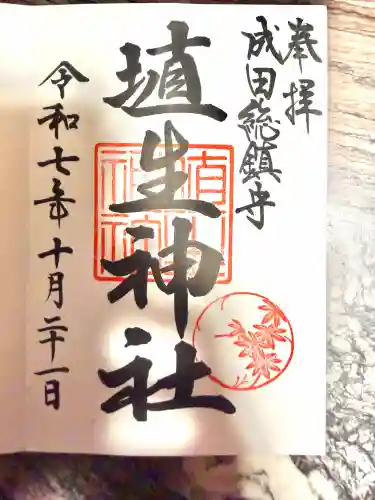 奉拝
成田総鎮守
埴生神社
令和七年十月二十一日